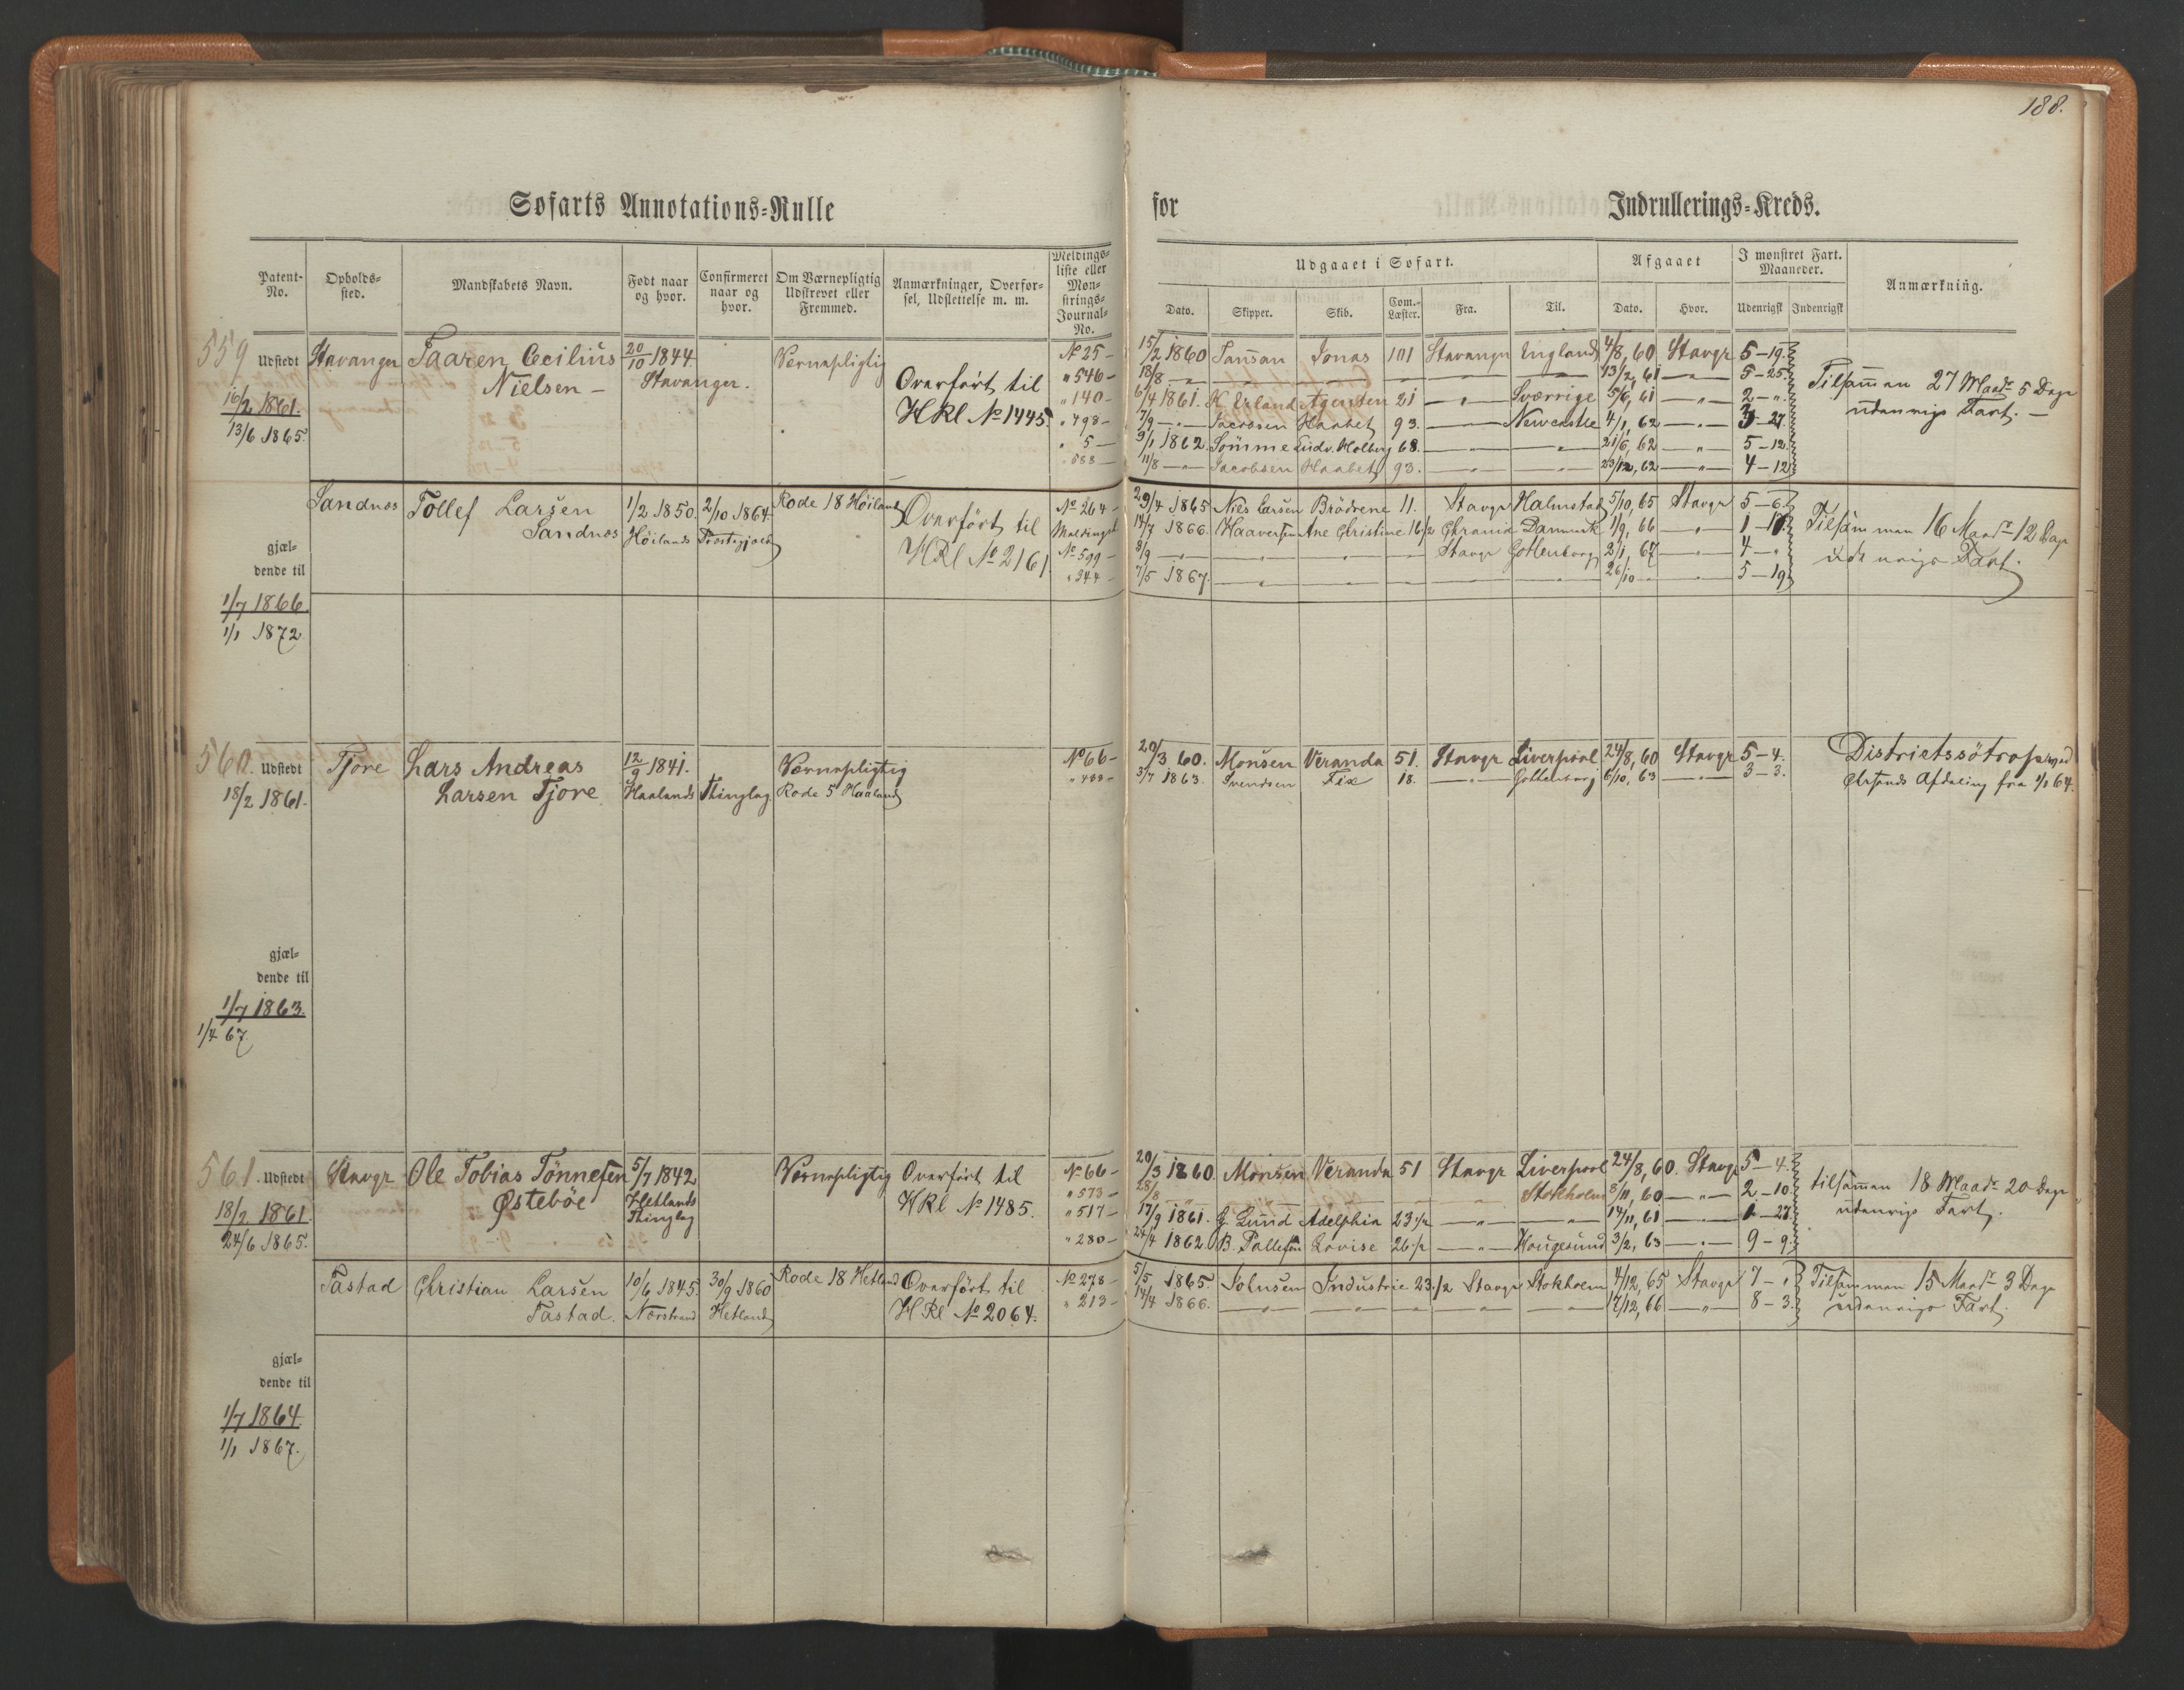 188.
Søfarts Annotations=Rulle for Indrullerings=Kreds.
Patent-No. Opholds-sted. Mandskabets Navn. Født naar og hvor. Confirmeret naar og hvor. Om Værnepligtig Udskrevet eller Fremmed. Anmærkninger, Overfør-sel, Udslettelse m. m. Meldings-liste eller Møn-strings-Journal-No.
Udgaaet i Søfart. Afgaaet I mønstret Fart. Maaneder. Anmærkning.
Dato. Skipper. Skib. Com.-Læster. Fra. Til. Dato. Hvor. Udenrigsk Indenrigsk
559 Udstedt Stavanger Saaren Cecilius 20/10 1844. Vernepligtig № 25 - 15/2 1860 Jonas 101 Stavanger England 4/8, 60 Stavgr 5-19.
Nielsen - Stavanger. " 546 - 18/8 — 13/2, 61 — 5-25.
16/2 1861. Overført til " 140 - 6/4 1861. 21 — Sverrige 5/6, 61 — 2-".
13/6 1865. HRl № 1445. " 498 - 7/9 — Jacobsen Haabet 93. — Newcastle 4/1, 62 — 3-27.
" 5 - 3/1 1862. Sømme Ludv. Holberg 68. — 21/6, 62 — 5-12.
" 588 - 11/8 — Jacobsen Haabet 93. — 23/12, 62 — 4-12
Tilsamman 27 Maadr 5 Dage
udenrigs Fart. —
Sandnes Tollef Larsen 1/2 1850. 2/10 1864. Rode 18 Høiland Overført til № 264 - 29/4 1865 Niels Larsen Brødrene 11. Stavgr Halmstad 5/10, 65 Stavgr 5-6.
Sandnes Høilands Præstegjæld HRl № 2161. 14/7 1866. Haaversen Ane Christine 16 1/2 Danmark 1/9, 66 — 1-17.
№ 599 - 3/9 — Stavgr Gottenborg 2/1, 67 — 4-"
" 344 - 7/5 1867. — 26/10 — 5-19
Tilsamman 16 Maadr 12 Dage
udenrigs Fart.
gjæl-
dende til
1/7 1866.
1/1 1872
560. Udstedt Tjore Lars Andreas 12/9 1841. Vernepligtig № 66 - 20/3 60. Monsen Veranda 51. Stavgr Liverpool 24/8, 60 Stavgr 5-4.
18/2 1861. Larsen Tjore Haalands Thinglag Rode 5 Haaland " 433 - 3/7 1863. Svendsen Fix 18. — Gottenborg 6/10, 63 — 3-3.
Afdeling fra 1/1 64.
gjæl-
dende til
1/7 1863.
1/4 67
561. Udstedt Stavgr Ole Tobias Tønnesen 5/7 1842 Vernepligtig Overført til № 66 - 20/3 1860. Monsen Veranda 51 Stavgr Liverpool 24/8, 60. Stavgr 5-4.
18/2 1861. Østebøe Hetlands Thinglag HRl № 1485. " 573 - 28/8 Stokholm 8/11, 60 — 2-10.
" 517 - 17/9 1861. J Lund Adelphia 23 1/2 — 14/11, 61 — 1-27.
24/6 1865. " 280 - 24/4 1862 B. Tallefsen Lovise 26 1/2 — Hougesund 3/2, 63 — 9-9.
tilsamman 18 Maadr 20 Dage
udenrigs Fart.
Tastad Christian Larsen 10/6 1845. 30/9 1860 Rode 18 Hetland Overført til № 278 - 5/5 1865. Industrie 23 1/2 Stavgr Stokholm 4/12, 65 Stavgr 7-"
Tastad. Nærstrand Hetland HRl № 2064. " 213 - 14/4 1866. — 17/12, 66 — 8-3.
Tilsamman 15 Maadr 3 Dage
udenrigs Fart.
gjæl-
dende til
1/7 1864.
1/1 1867.